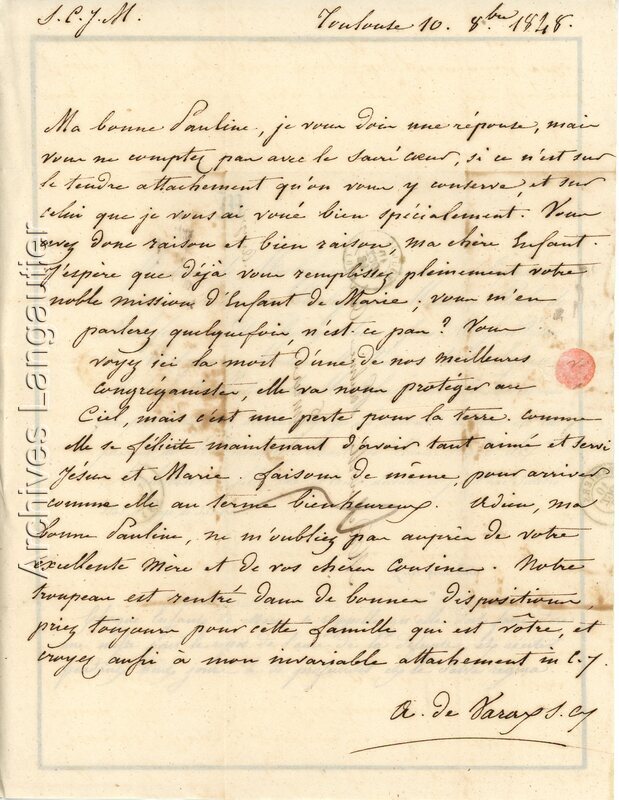 S. C. J. M. Toulouse 10. 8.bre 1848.
Ma bonne Pauline, je vous dois une réponse, mais
vous ne comptez pas avec le sacré cœur, si ce n'est sur
le tendre attachement qu'on vous y conserve et sur
celui que je vous ai voué bien spécialement. Vous
avez donc raison et bien raison, ma chère Enfant.
J'espère que déjà vous remplissez pleinement votre
noble mission d'Enfant de Marie ; vous m'en
parlerez quelquefois, n'est-ce pas ? Vous
voyez ici la mort d'une de nos meilleures
congréganistes, elle va nous protéger au
Ciel, mais c'est une perte pour la terre. comme
elle se félicite maintenant d'avoir tant aimé et servi
Jésus et Marie. faisons de même, pour arriver
comme elle au terme bienheureux. Adieu, ma
bonne Pauline, ne m'oubliez pas auprès de votre
excellente Mère et de vos chères cousines. Notre
troupeau est rentré dans de bonnes dispositions,
priez toujours pour cette famille qui est vôtre, et
croyez aussi à mon invariable attachement in C. J.
A. de Varax s. c j
Archives Langautier